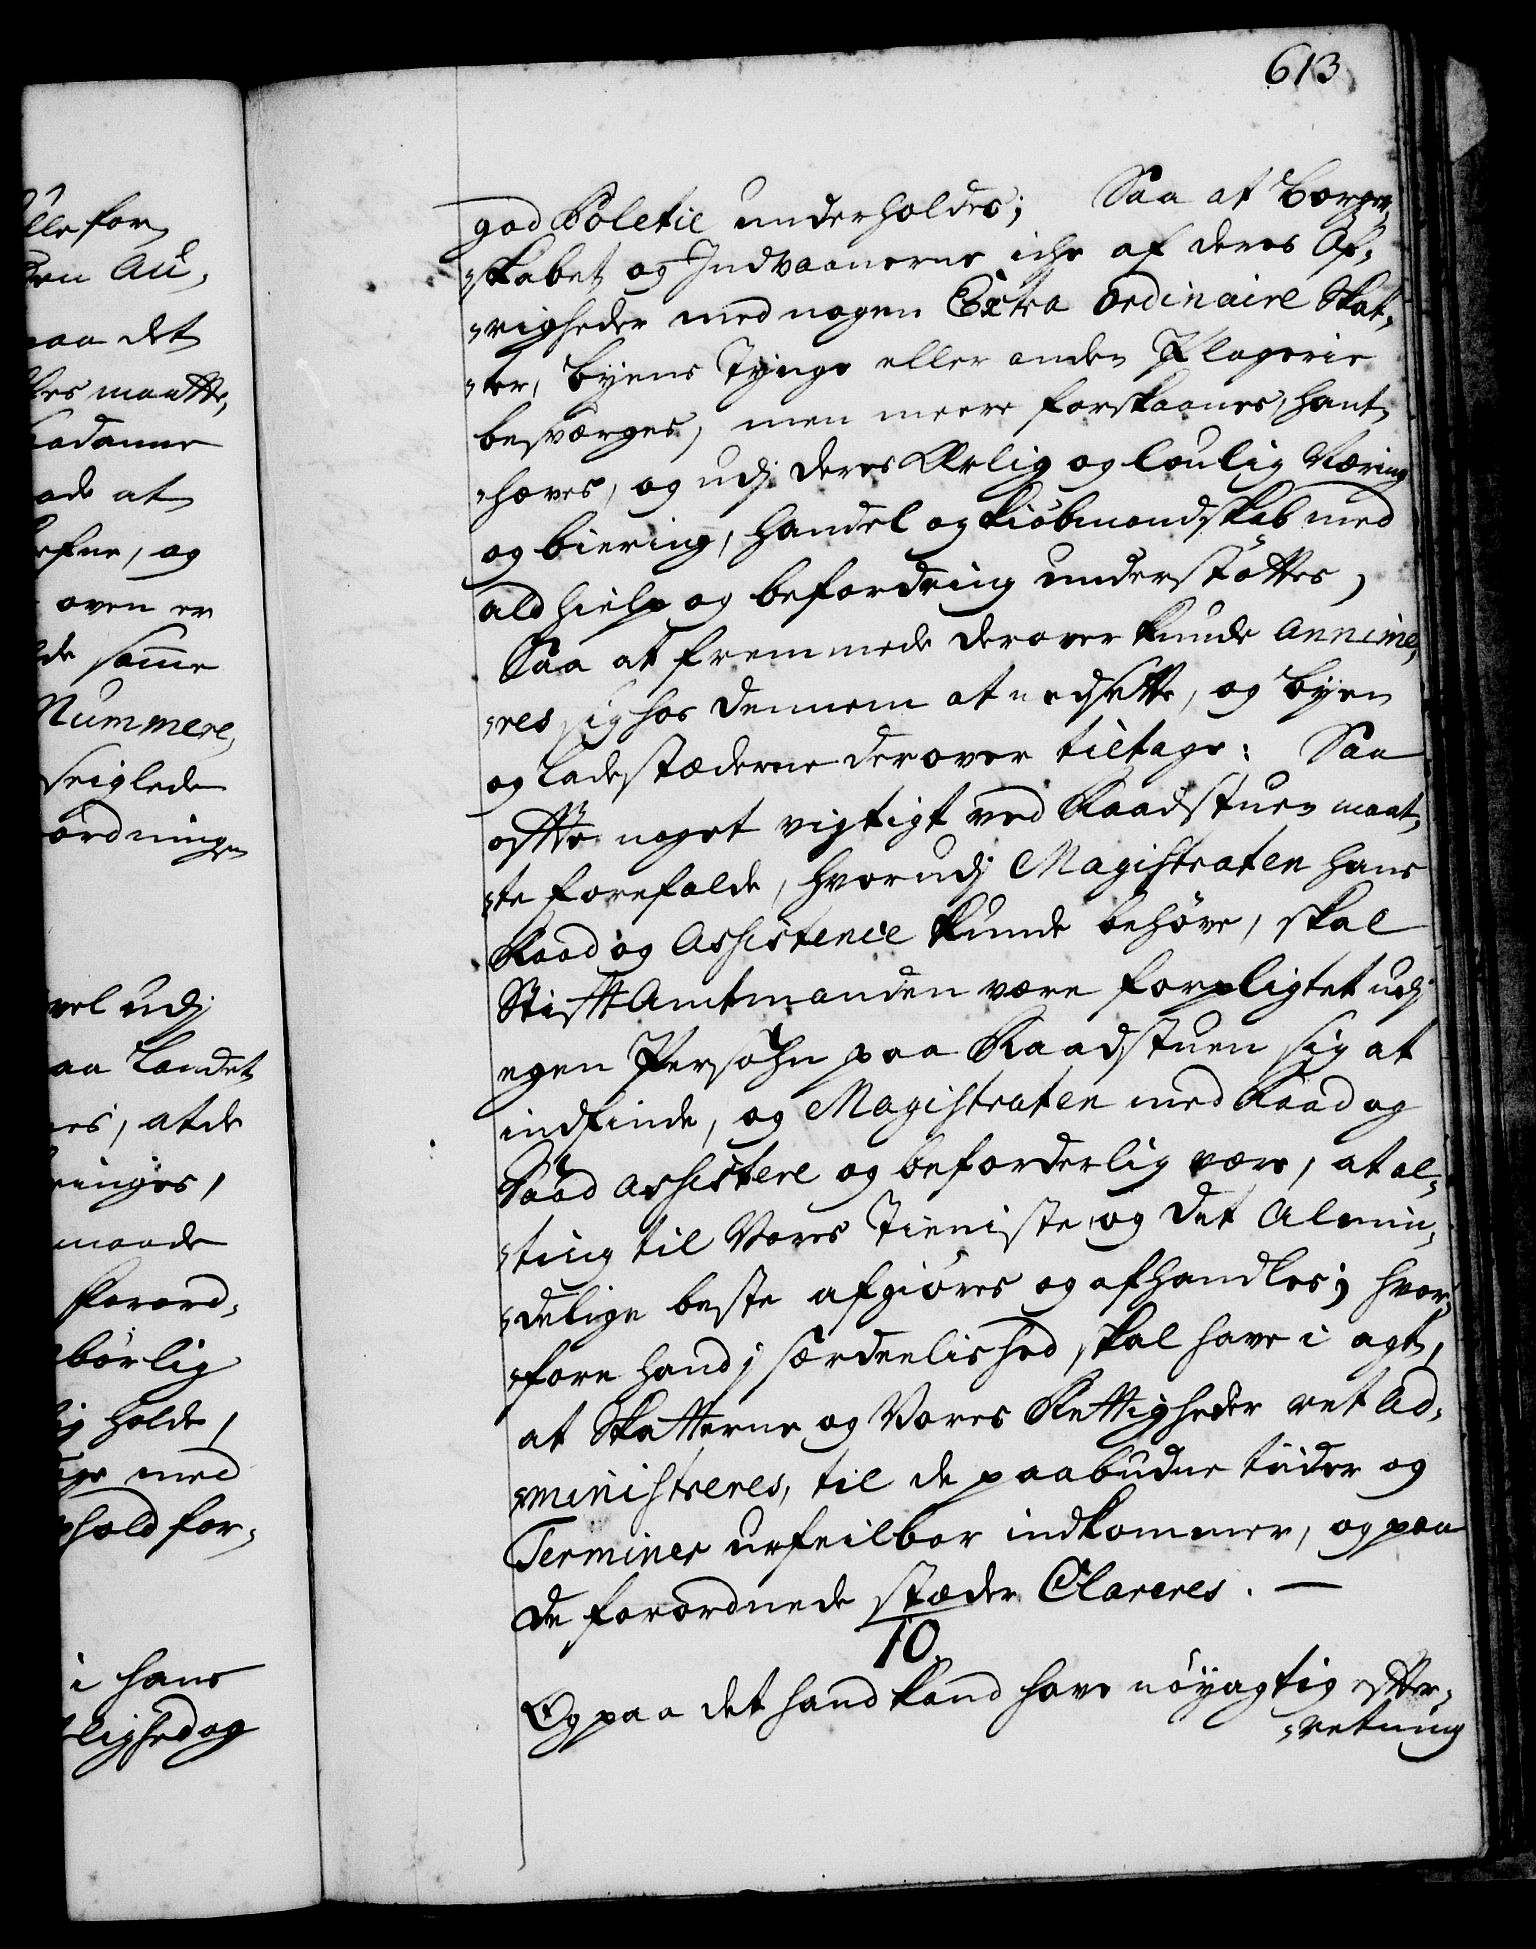 613
god Poletie underholdes; Saa at borger,
„skabet og Indvaanerne iche af deres Øf„
„righeder med nogen Extra ordinaire Skat„
„ter, byens Tynge eller anden Plagerie
besværges, men meere forskaanes, hant„
„hæves, og udj deres Ærlig og loulig Næring
og biering, handel og kiöbmandskab med
ald hielp og befordring understøttes,
Saa at fremmede derover kunde annime„
„res sig hos dennem at nedsætte, og byen
og ladestæderne derover tiltage: Saa
ofte noget vigtigt ved Raadstuen maat„
„te forefalde, hvorudj Magistraten hans
Raad og Assistence kunde behöve, skal
StiftAmtmanden være forpligtet udj
egen Persohn paa Raadstuen sig at
indfinde, og Magistraten med Raad og
Daad assistere og beforderlig være, at al„
„ting til Vores Tieniste og det Almin„
„delige beste afgiöres og afhandles; hvor„
„fore hand j særdeelished skal have i agt,
at Skatterne og Vores Rettigheder ret ad„
„ministreres, til de paabudne tiider og
Terminer ufeilbar indkommer, og paa
de forordnede stæder Clareres. —
10.
Og paa det hand kand have nöyagtig efter„
„retning
lle for
den Au„
paa det
les maatte,
saadanne
ade at
efne, og
oven er
de samme
Nummere,
seiglede
ordninger
vel udj
paa Landet
es, at de
ringes,
maade
Forord„
börlig
ig holde,
ige med
hold for„
i hans
lighed og